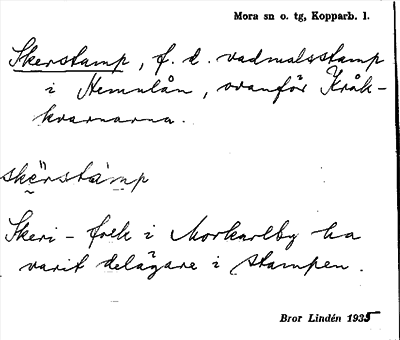 Mora sn o. tg, Kopparb. l.
Skerstamp, f. d. vadmalsstamp
i Hemulån, ovanför Kråk-
kvarnarna.
skërstàmp
Skeri-folk i Morkarlby ha
varit delägare i stampen.
Bror Lindén 1935